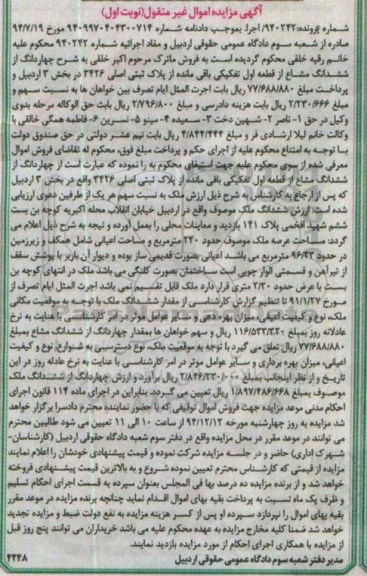 آگهی مزایده اموال غیر منقول(نوبت اول)
شماره پرونده:۹۴۰۲۴۲/ اجرا. بموجب دادنامه شماره ۹۴۰۹۹۷۰۴۰۴۳۰۰۷۱۴ مورخ ۹۴/۷/۱۹
صادره از شعبه سوم دادگاه عمومی حقوقی اردبیل و مفاد اجرائیه شماره ۹۴۰۲۴۲ محکوم علیه
خانم رقیه خلقی محکوم گردیده است به فروش ماترک مرحوم اکبر خلقی به شرح چهاردانگ از
ششدانگ مشاع از قطعه اول تفکیکی باقی مانده از پلاک ثبتی اصلی ۳۴۲۶ در بخش ۳ اردبیل و
مبلغ ۷۷/۶۸۸/۸۸۰ ریال بابت اجرت المثل ایام تصرف بین خواهان ها به نسبت سهم و
مبلغ ۲/۲۳۰/۶۶۶ ریال بابت هزینه دادرسی و مبلغ ۲/۷۹۶/۸۰۰ ریال بابت حق الوکاله مرحله بدوی
وکیل در حق ۱- ناصر ۲- شهین دخت ۳- سعیده ۴- مینو ۵- نسرین ۶- فاطمه همگی خالقی با
وکالت خانم لیلا ارشادی فر و مبلغ ۴/۸۴۴/۴۴۴ ریال بابت نیم عشر دولتی در حق صندوق دولت
با توجه به امتناع محکوم علیه از اجرای حکم و پرداخت مبلغ فوق، محکوم له تقاضای فروش اموال
معرفی شده از سوی محکوم علیه جهت استیفای محکوم به را نموده که عبارت است از چهاردانگ از
ششدانگ مشاع از قطعه اول تفکیکی باقی مانده از پلاک ثبتی اصلی ۳۴۲۶ واقع در بخش ۳ اردبیل
که پس از ارجاع به کارشناس به شرح ذیل ارزش ملک به نسبت سهم هر یک از طرفین دعوی ارزیابی
شده است: ارزش ششدانگ ملک موصوف واقع در اردبیل خیابان انقلاب محله اکبریه کوچه بن بست
ششم شهید افخمی پلاک ۱۴۱ بازدید و معاینات محلی را بعمل آورده و نتیجه به شرح ذیل اعلام می
گردد: مساحت عرصه ملک موصوف حدود ۲۳۰ مترمربع و مساحت اعیانی شامل همکف و زیرزمین
در حدود ۹۶/۳۳ مترمربع می باشد. اعیانی بصورت قدیمی ساز بوده و دیوار آن باربر با پوشش سقف
از تیرآهن و قسمتی الوار چوبی است ساختمان بصورت کلنگی می باشد ملک در انتهای کوچه بن
بست با عرض حدود ۲/۳۰ متری قرار دارد ملک قابل تقسیم نمی باشد اجرت المثل ایام تصرف از
مورخ ۹۱/۱/۲۷ تا تنظیم گزارش کارشناسی از مقدار ششدانگ ملک با توجه به موقعیت مکانی
ملک، نوع و کیفیت اعیانی، میزان بهره دهی و سایر عوامل موثر در امر کارشناسی با عنایت به نرخ
عادلانه روز بمبلغ ۱۱۶/۵۳۳/۳۲۰ ریال و سهم خواهان ها بمقدار چهاردانگ از ششدانگ مشاع بمبلغ
۷۷/۶۸۸/۸۸۰ ریال تعلق می گیرد با توجه به موقعیت ملک، نوع دسترسی به شوارع، نوع و کیفیت
اعیانی، میزان بهره برداری و سایر عوامل موثر در امر کارشناسی با عنایت به نرخ عادله روز در این
تاریخ و از نظر اینجانب بمبلغ ریال برآورد و ارزش چهاردانگ از ششدانگ ملک
موصوف بمبلغ ۱/۸۹۷/۴۸۶/۶۶۸ ریال تعیین می گردد. بنابراین در اجرای ماده ۱۱۴ قانون اجرای
احکام مدنی موعد مزایده جهت فروش اموال توقیفی که با حضور نماینده محترم دادسرا برگزار خواهد
شد مزایده به روز چهارشنبه مورخه ۹۴/۱۲/۱۲ از ساعت ۱۰ الی ۱۱ تعیین می شود طالبین محترم
می توانند در موعد مقرر در محل مزایده واقع در دفتر سوم شعبه دادگاه حقوقی اردبیل (کارشناسان-
شهرک اداری) حاضر و در جلسه مزایده شرکت نموده و قیمت پیشنهادی خودشان را اعلام نمایند
مزایده از قیمتی که کارشناس محترم تعیین نموده شروع و به بالاترین قیمت پیشنهادی فروخته
خواهد شد و از برنده مزایده ده درصد بها فی المجلس بعنوان سپرده به قسمت اجرای احکام تسلیم
و ظرف یک ماه نسبت به پرداخت بقیه بهای اموال اقدام نماید چنانچه برنده مزایده در موعد مقرر
بقیه بهای اموال را نپردازد سپرده او پس از کسر هزینه مزایده به نفع دولت ضبط و مزایده تجدید
خواهد شد ضمنا کلیه مخارج مزایده به عهده محکوم علیه می باشد خریداران می توانند پنج روز قبل
از مزایده با همکاری اجرای احکام از مورد مزایده بازدید نمایند.
مدیر دفتر شعبه سوم دادگاه عمومی حقوقی اردبیل ۴۳۴۸